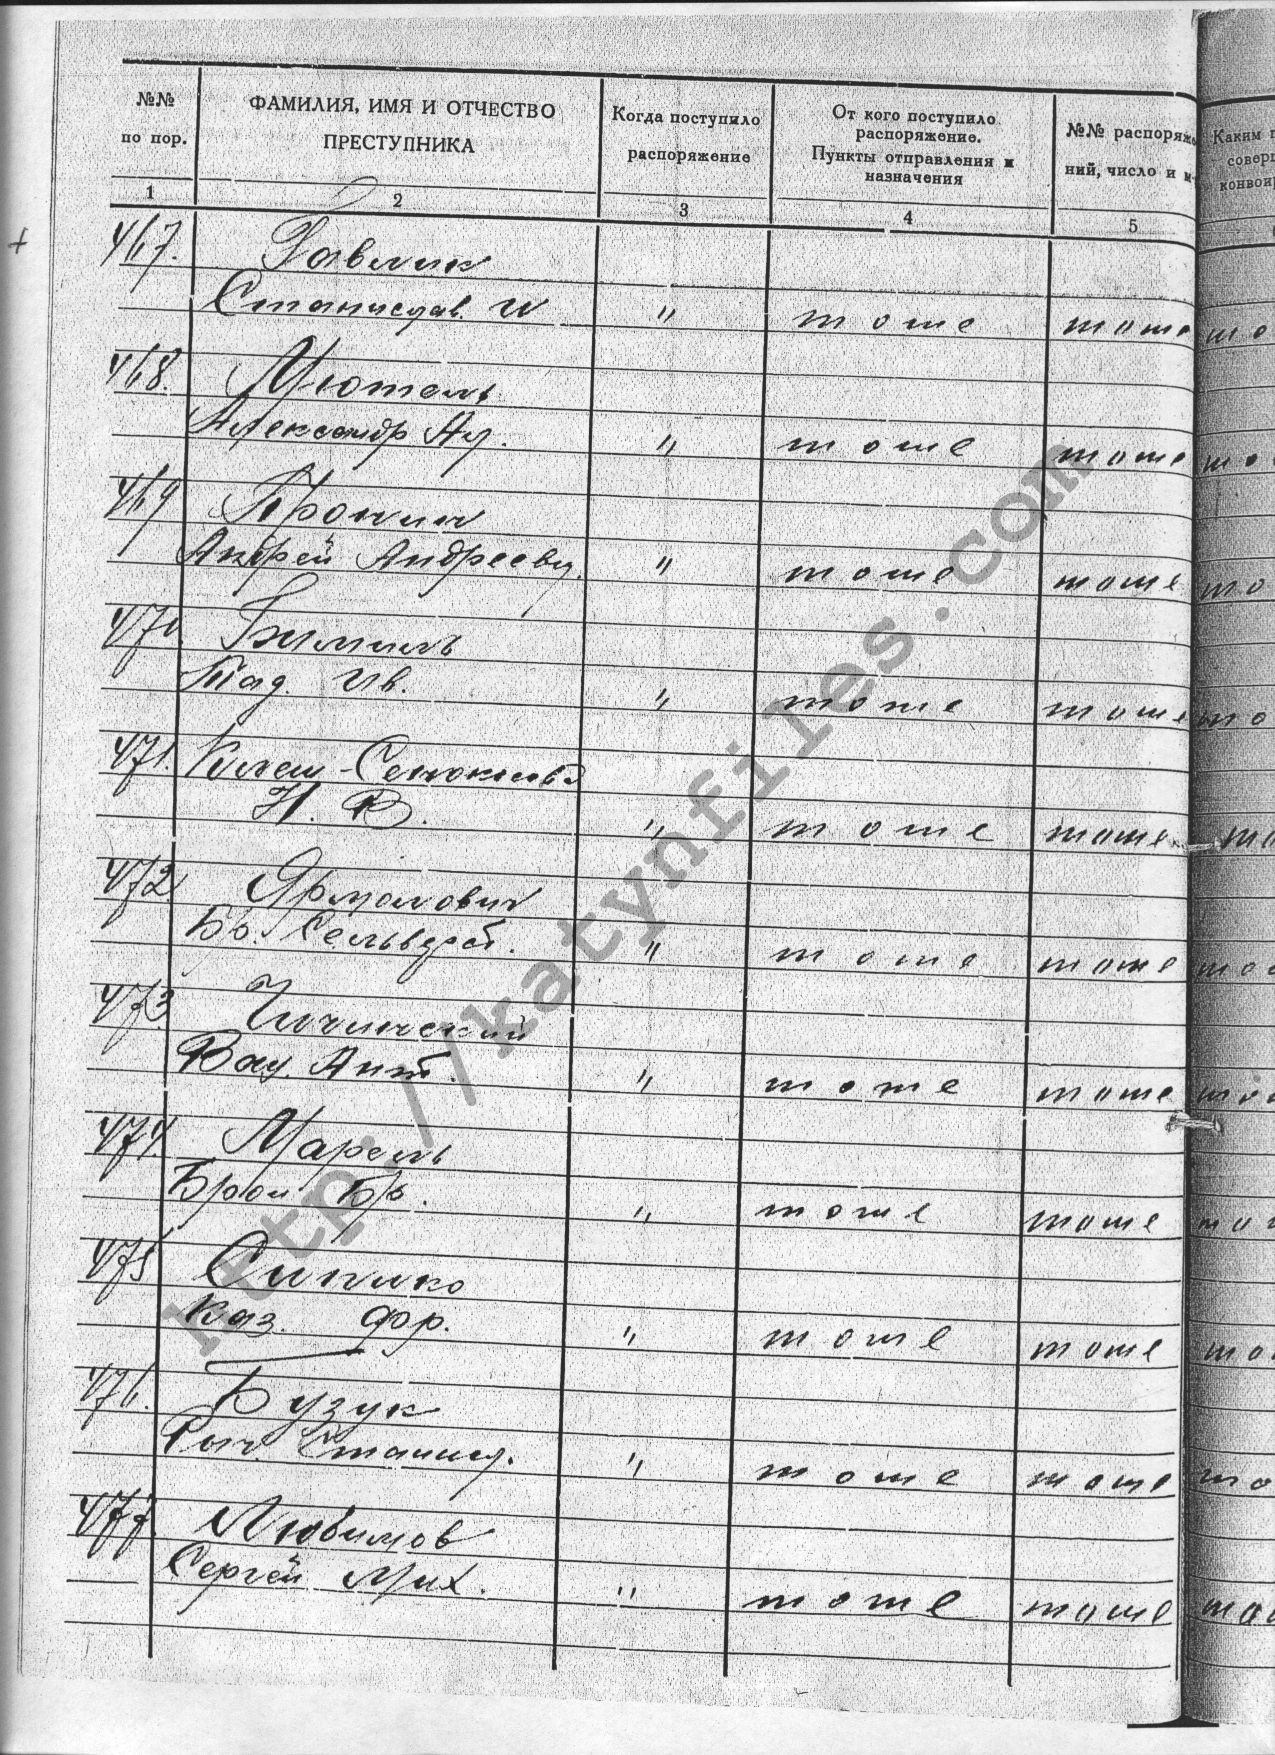 №№
по пор.
ФАМИЛИЯ, ИМЯ И ОТЧЕСТВО
ПРЕСТУПНИКА
Когда поступило
распоряжение
От кого поступило
распоряжение.
Пункты отправления и
назначения
№№ распоряже
ний, число и
Каким
совер
конвои
1 2 3 4 5
467. Гавлик
Станислав. И " тоже тоже то
468. Мютель
Александр Ал. " тоже тоже то
469 Пронич
Андрей Андрееви. " тоже тоже то
470
Тад. Ив. " тоже тоже то
471.
Н. В. " тоже тоже то
472. Ярмолович
Бр. " тоже тоже то
473 Чичинский
Вац. Ант. " тоже тоже то
474. Марель
Брон Бр. " тоже тоже то
475 Сипико
Каз. Фр. " тоже тоже то
476. Бузук
Станисл. " тоже тоже то
477. Любимов
Сергей Мих. " тоже тоже то
http://katynfiles.com